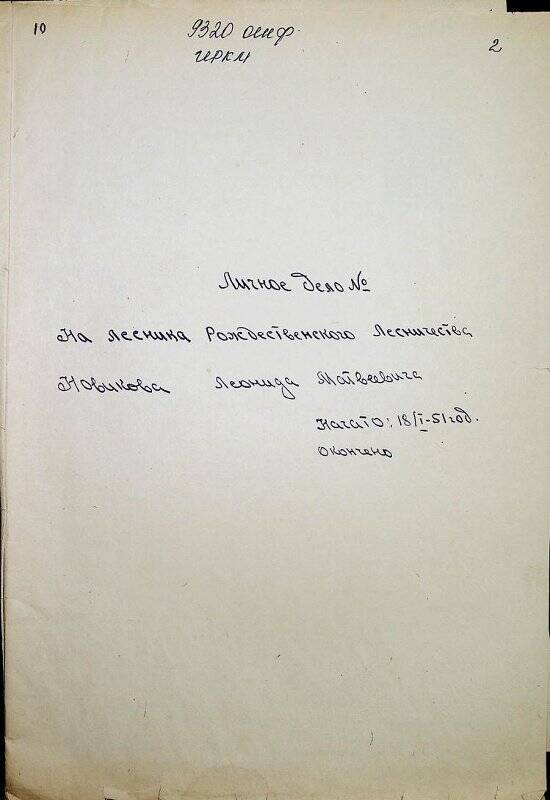 10
9320 онф
гиркм
2
Личное Дело №
На лесника Рождественского Лесничества
Новикова Леонида Матвеевича
Начато: 18/I-51 год.
Окончено